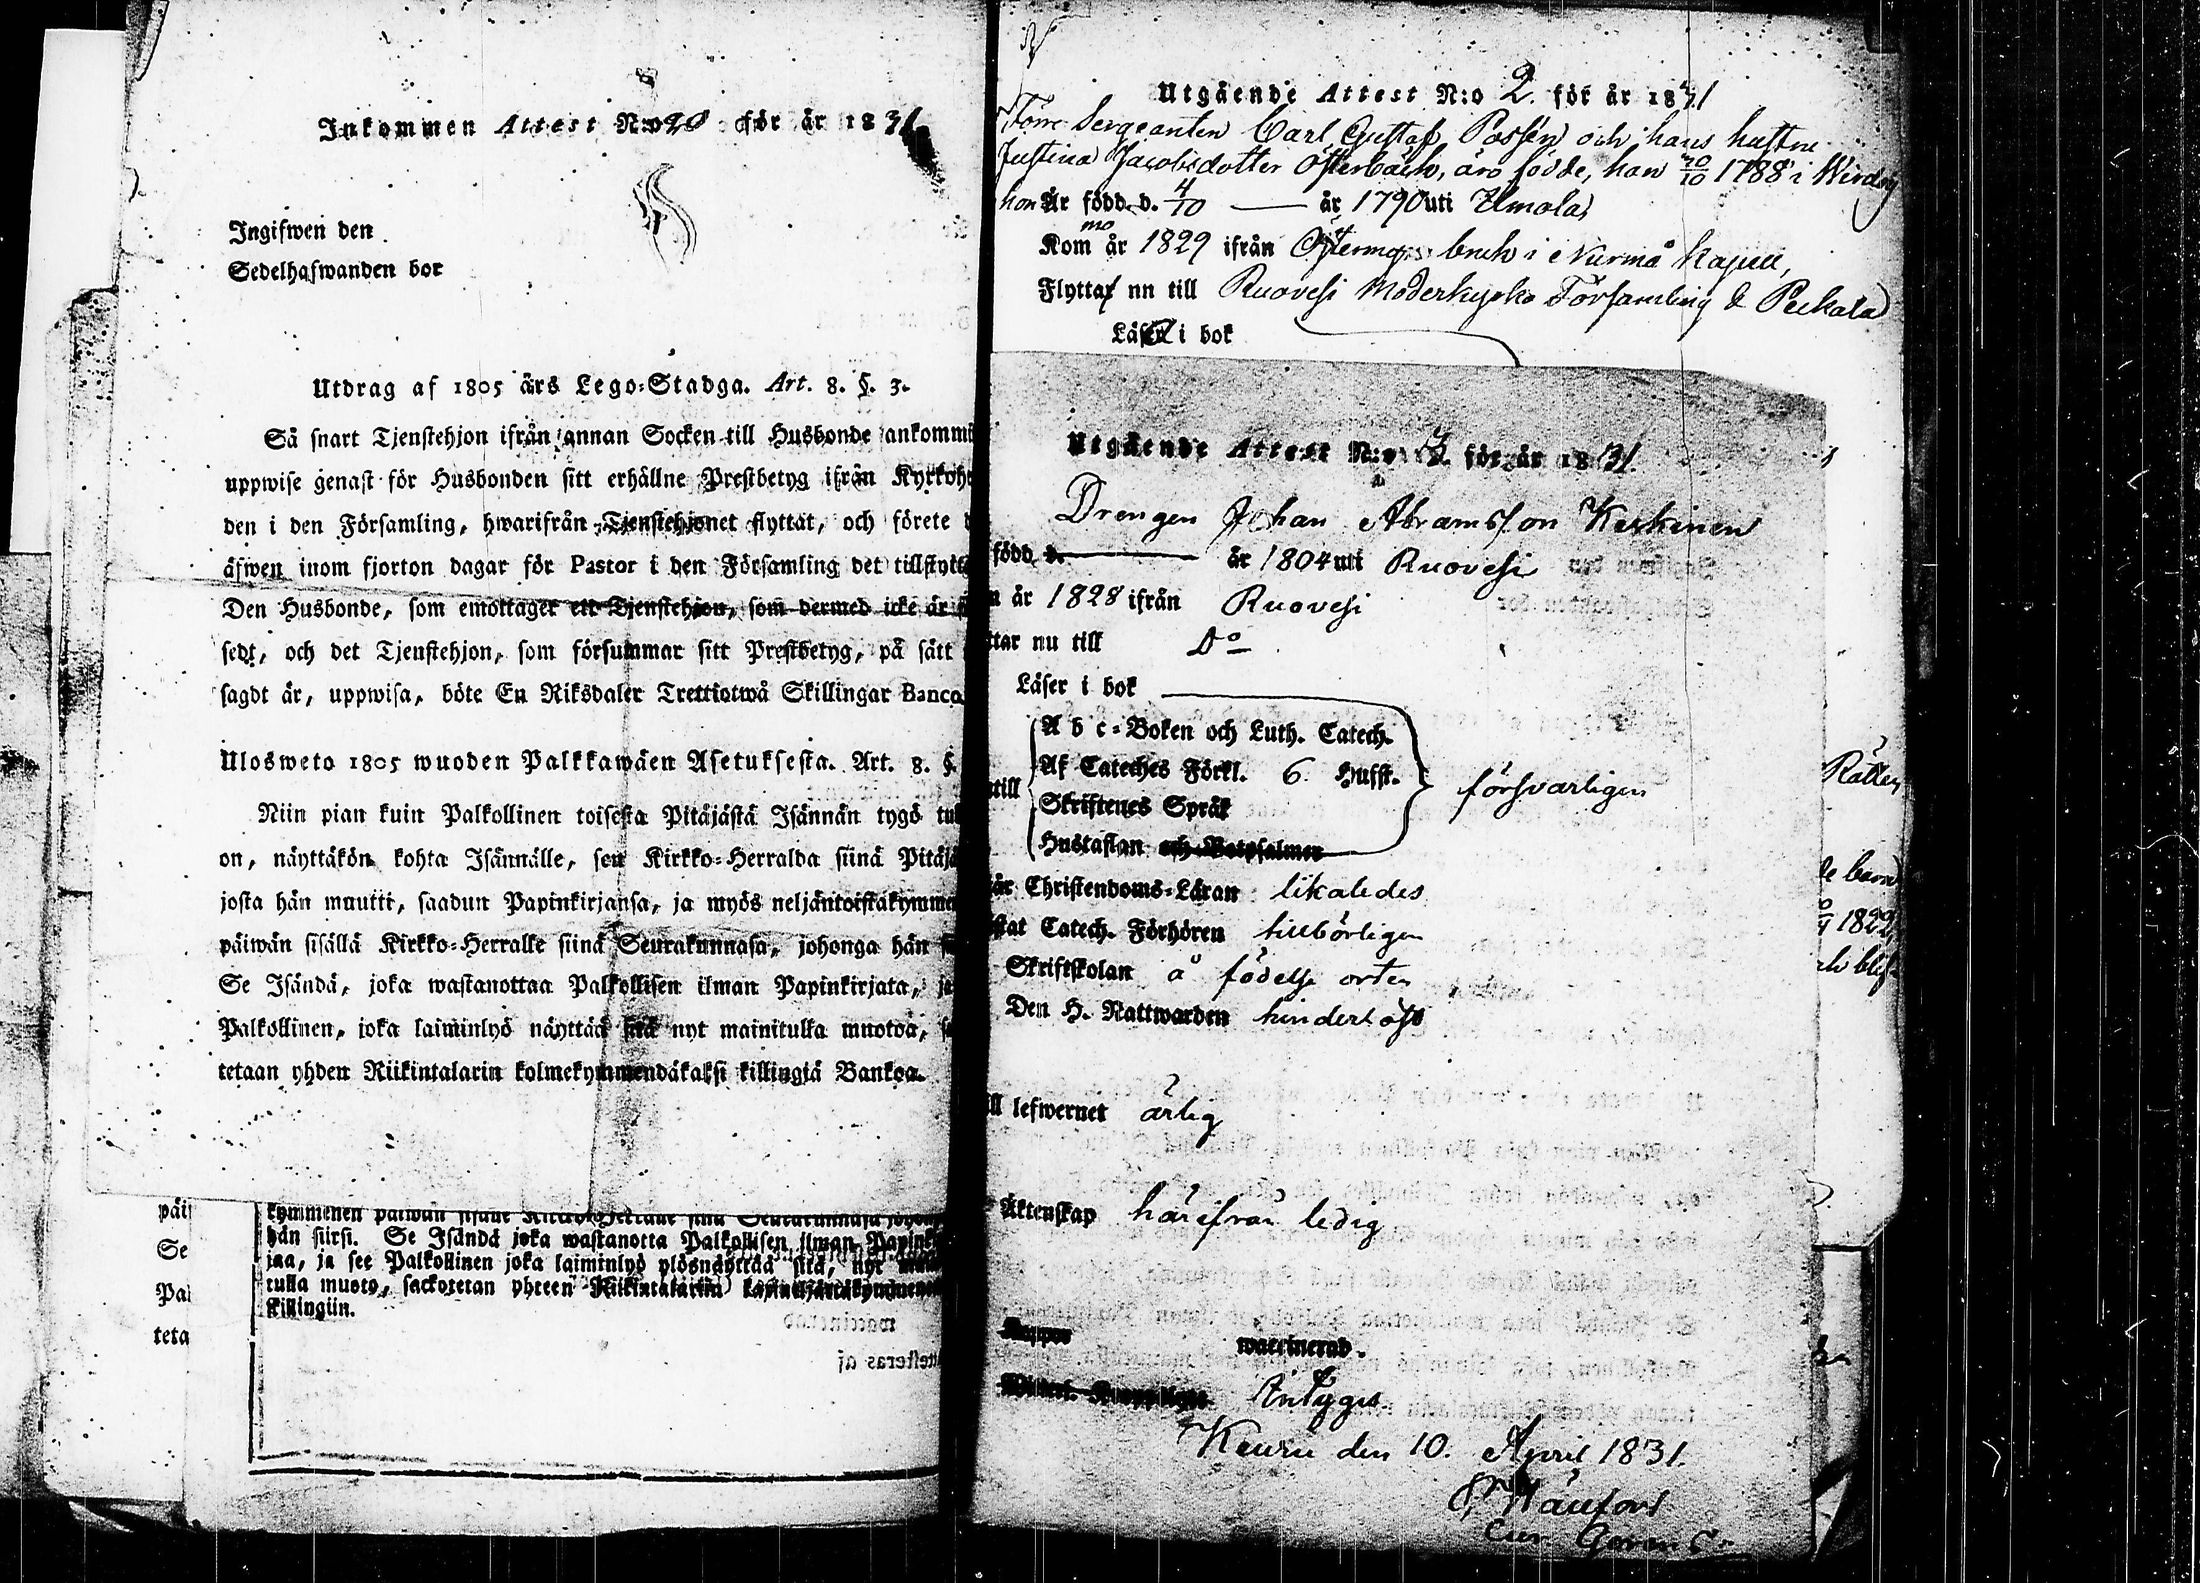 Inkommen Attest N:o 20 för år 1831
Ingifwen den
Sedelhafwanden bor
Utdrag af 1805 års Lego-Stadga. Art. 8. §. 3.
Så snart Tjenstehjon ifrån annan Socken till Husbonde ankommi
uppwise genast för Husbonden sitt erhållne Prestbetyg ifrån Kyrkohe
den i den Församling, hwarifrån Tjenstehjonet flyttat, och förete d
äfwen inom fjorton dagar för Pastor i den Församling det tillflytt
Den Husbonde, som emottager ett Tjenstehjon, som dermed icke är f
sedt, och det Tjenstehjon, som försummar sitt Prestbetyg, på sätt
sagdt är, uppwisa, böte En Riksdaler Trettiotwå Skillingar Banco.
Ulosweto 1805 wuoden Palkkawäen Asetuksesta. Art. 8. §.
Niin pian kuin Palkollinen toisesta Pitäjästä Isännän tygö tul
on, näyttäkön kohta Isännälle, sen Kirkko-Herralda siinä Pitäjä
josta hän muutti, saadun Papinkirjansa, ja myös neljäntoistakymme
päiwän sisällä Kirkko-Herralle siinä Seurakunnasa, johonga hän s
Se Isändä, joka wastanottaa Palkollisen ilman Papinkirjata, ja
Palkollinen, joka laiminlyö näyttää sitä nyt mainitulla muotoa, s
tetaan yhden Riikintalarin kolmekymmendäkaksi killingiä Bankoa.
päi
Se
Pal
teta
kymmenen päiwän sisälle Kirkko-Herralle siinä Seurakunnasa johon
hän siirsi. Se Isändä joka wastanotta Palkollisen ilman Papink
jaa, ja see Palkollinen joka laiminlyö ylösnäyttää sitä, nyt
tulla muoto, sackotetan yhteen Riikintalariin
killingiin.
Utgående Attest N:o 2. för år 1831
Förre Sergeanten Carl Gustaf Possén och hans hustru
Justina Jacobsdotter Österback, äro födde, han 20/10 1788 i Wirdoi
hon är född d. 4/10 år 1790 uti Ilmola,
Kommo år 1829 ifrån Östermyra bruk i Nurmo Kapell,
Flytta nu till Ruovesi Moderkyrko Församling & Peckala
Läsa i bok
Utgående Attest N:o 3. för år 1831.
Drengen Johan Abramsson Keskinen
född d. år 1804 uti Ruovesi
m år 1828 ifrån Ruovesi
ttar nu till Do
Läser i bok
A b c-Boken och Luth. Catech.
Af Cateches Förkl. 6. Hufst.
ntill
försvarligen
Skriftenes Språk
Hustaflan och Botpsalmer
är Christendoms-Läran likaledes
stat Catech. Förhören tillbörligen
Skriftskolan å födelse orten
Den H. Nattwarden hinderlöst
ll lefwernet ärlig
Äktenskap härifrån ledig
Koppor waccinerad.
Intygas
Keuru den 10. April 1831.
Rätten
1822